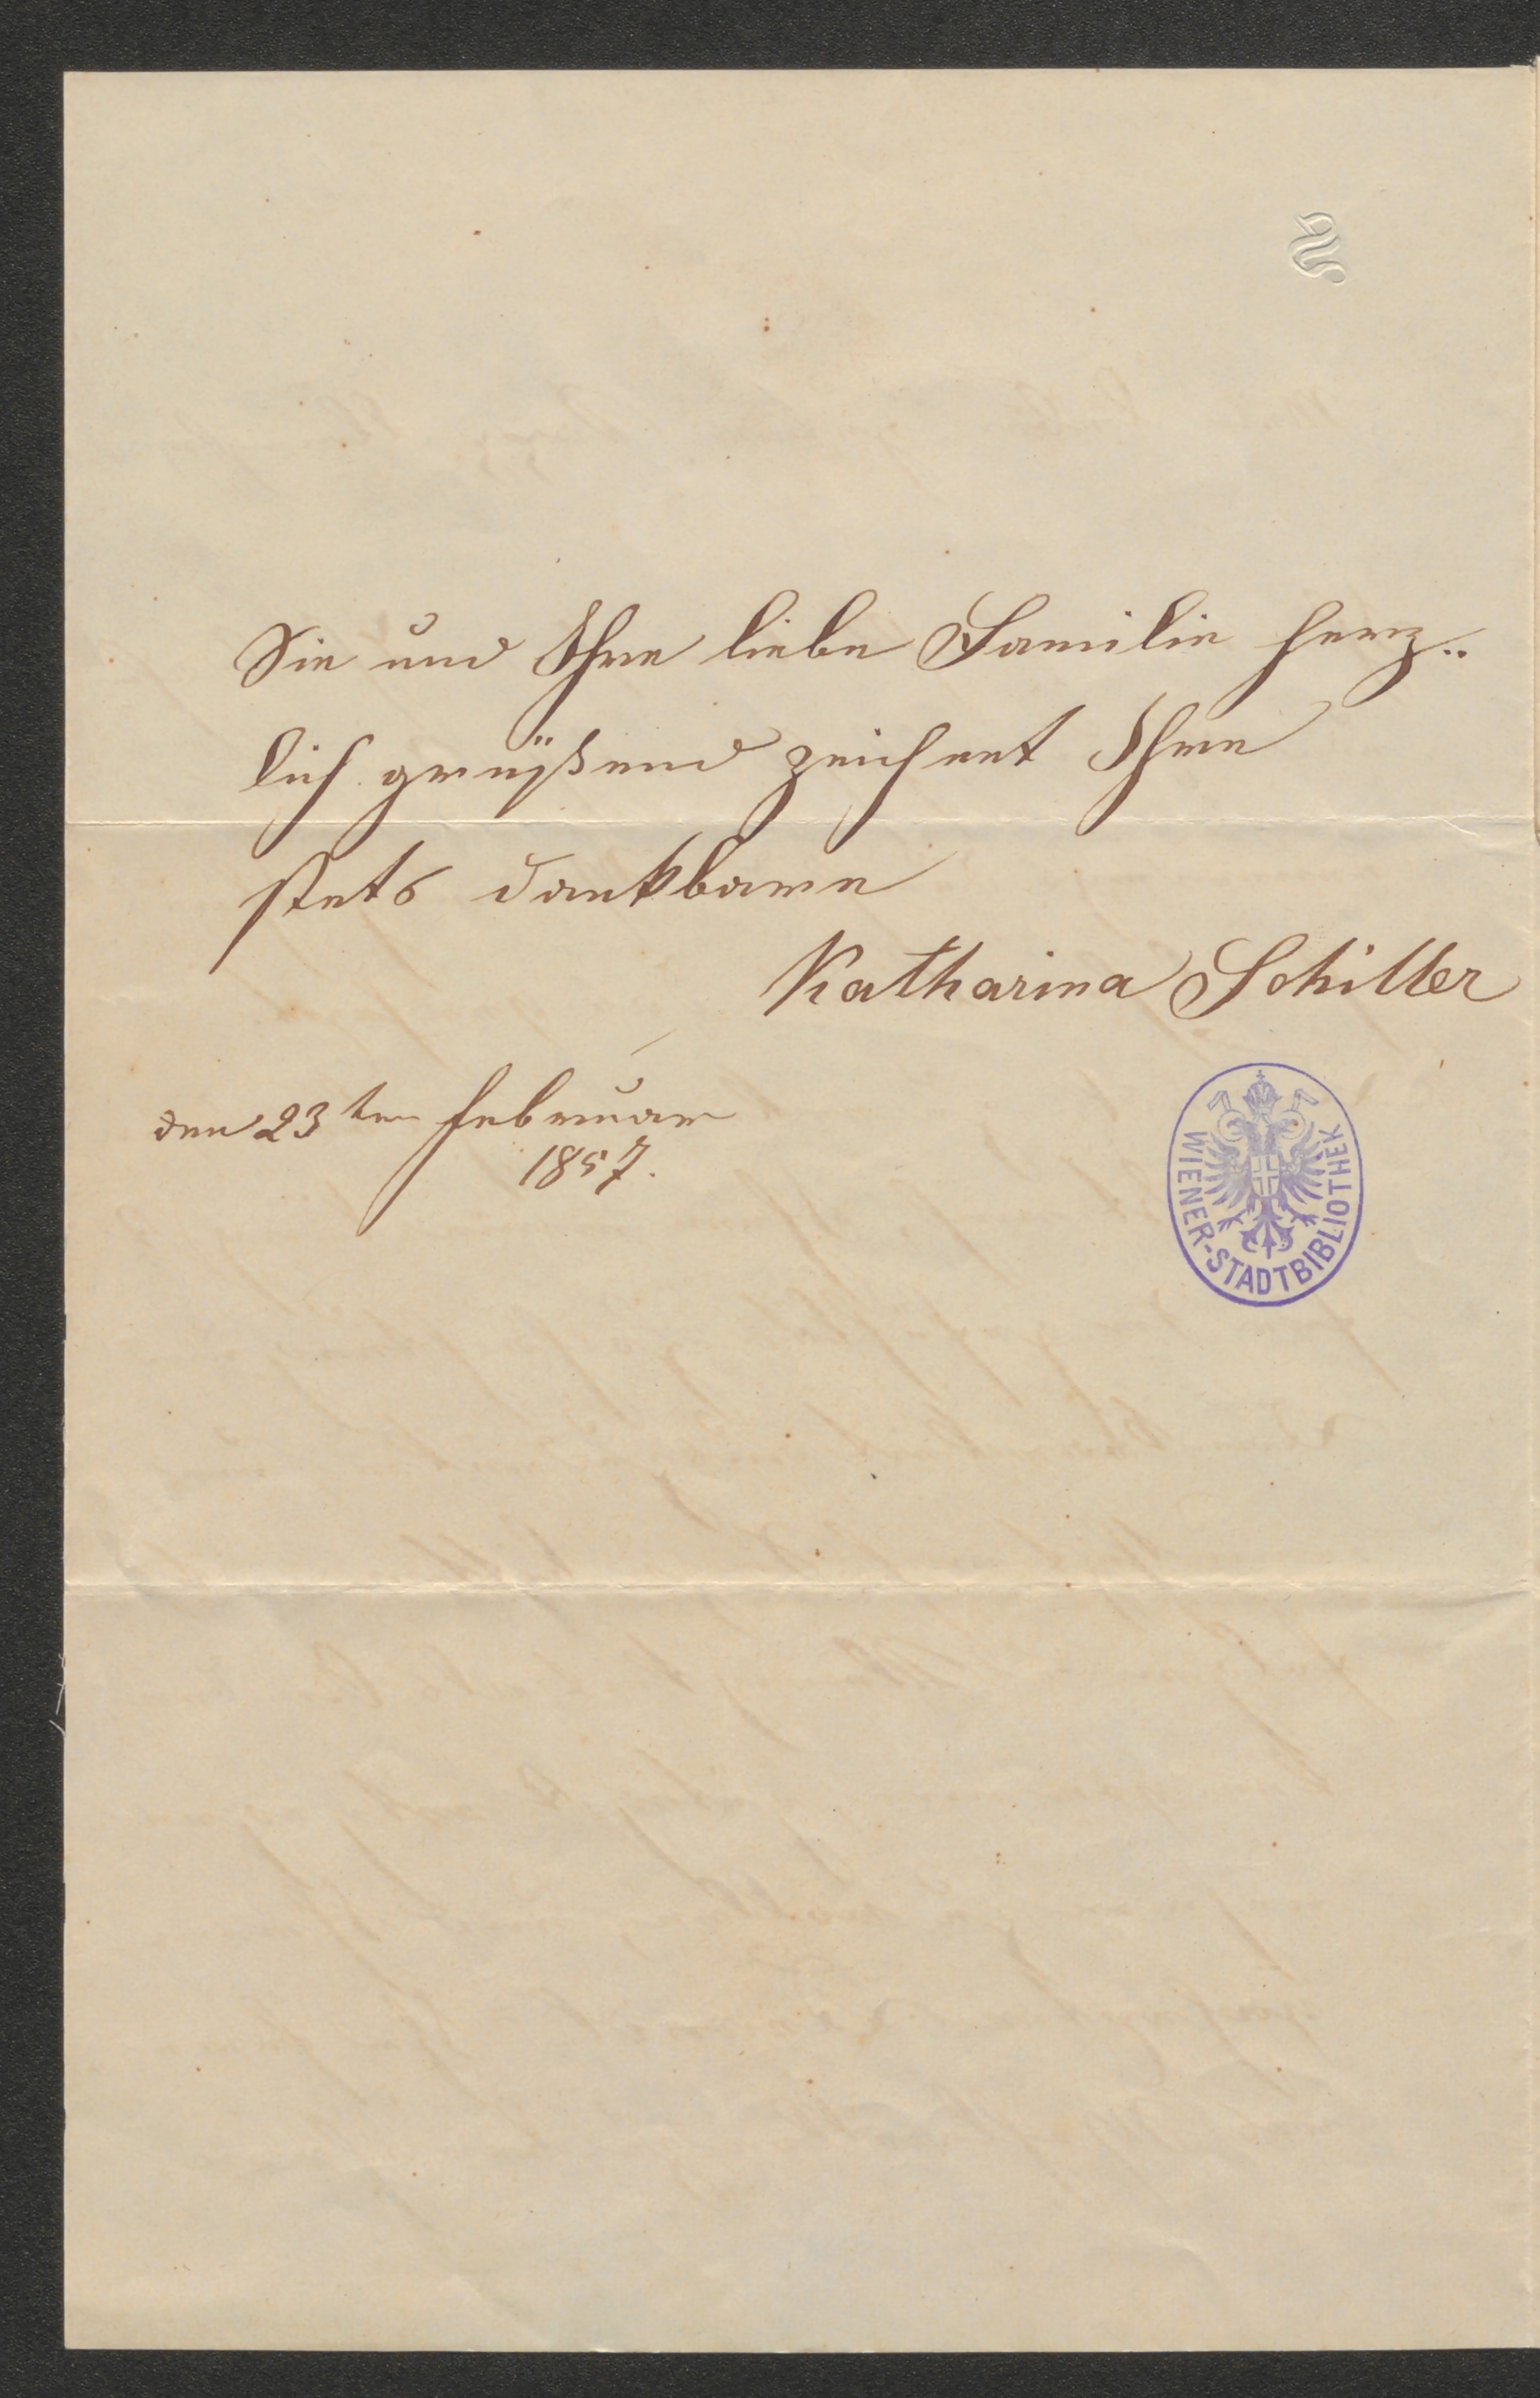 Sie und Ihre liebe Familie herz¨
lich grüßend zeichnet Ihre
stets dankbare
Katharina Schiller
den 23ten Februar
1857.
WIENER-STADTBIBLIOTHEK